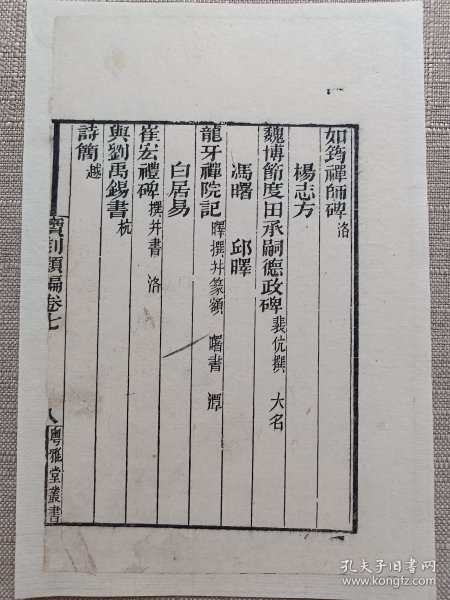 如筠禪師碑洛
楊志方
魏博節度田承嗣德政碑裴伉撰 大名
馮曙 邱曎
龍牙禪院記曎撰并篆額 曙書 潭
白居易
崔宏禮碑撰并書 洛
與劉禹錫書杭
詩簡越
寶刻類編卷七
八 粵雅堂叢書
孔夫子旧书网
www.kongfz.com